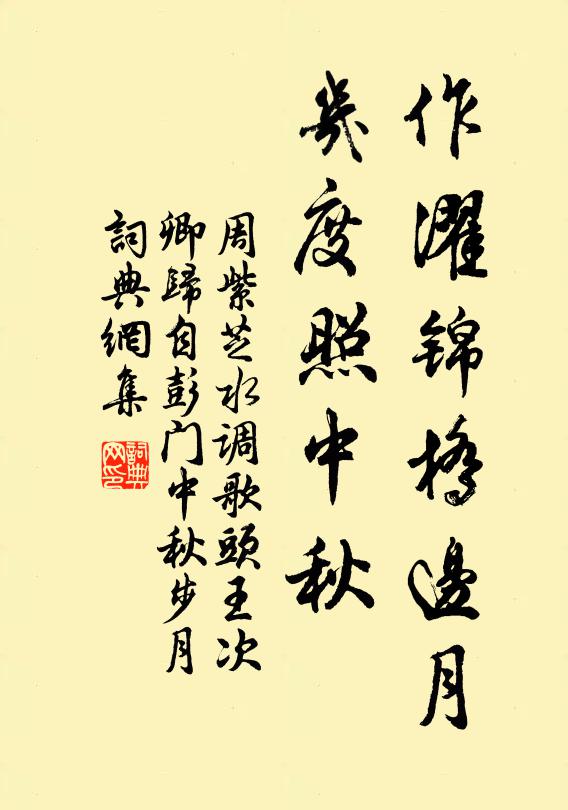 作濯锦橋邊月
幾度照中秋
周紫芝水调歌頭王次
卿歸自彭门中秋步月
詞典網集
詞典
网印